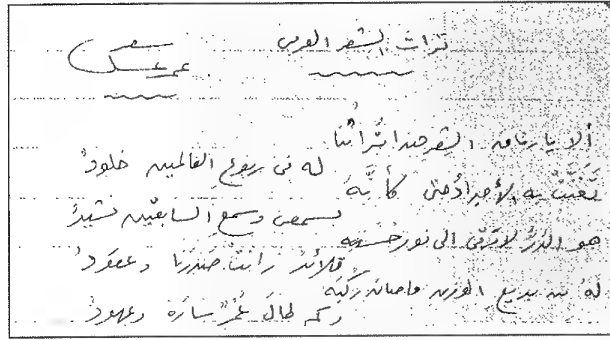 تراث الشعر العربي
شعر
عمر عسل
ألا يا رفاق الشعر هذا تُراثُنا
له في ربوع العالمين خلودُ
تَغَنَّتْ به الأجدادُ حتى كأنَّهُ
بسمعي وسمع السابقين نشيدُ
هو الدرُّ لا ترقى إلى نور حسنه
قلائدُ زانتْ صدرَنا وعقودُ
لهُ من بديع الوزن ما صان ركبَه
وكم طالَ عُمْرٌ سارَهُ وعهودُ